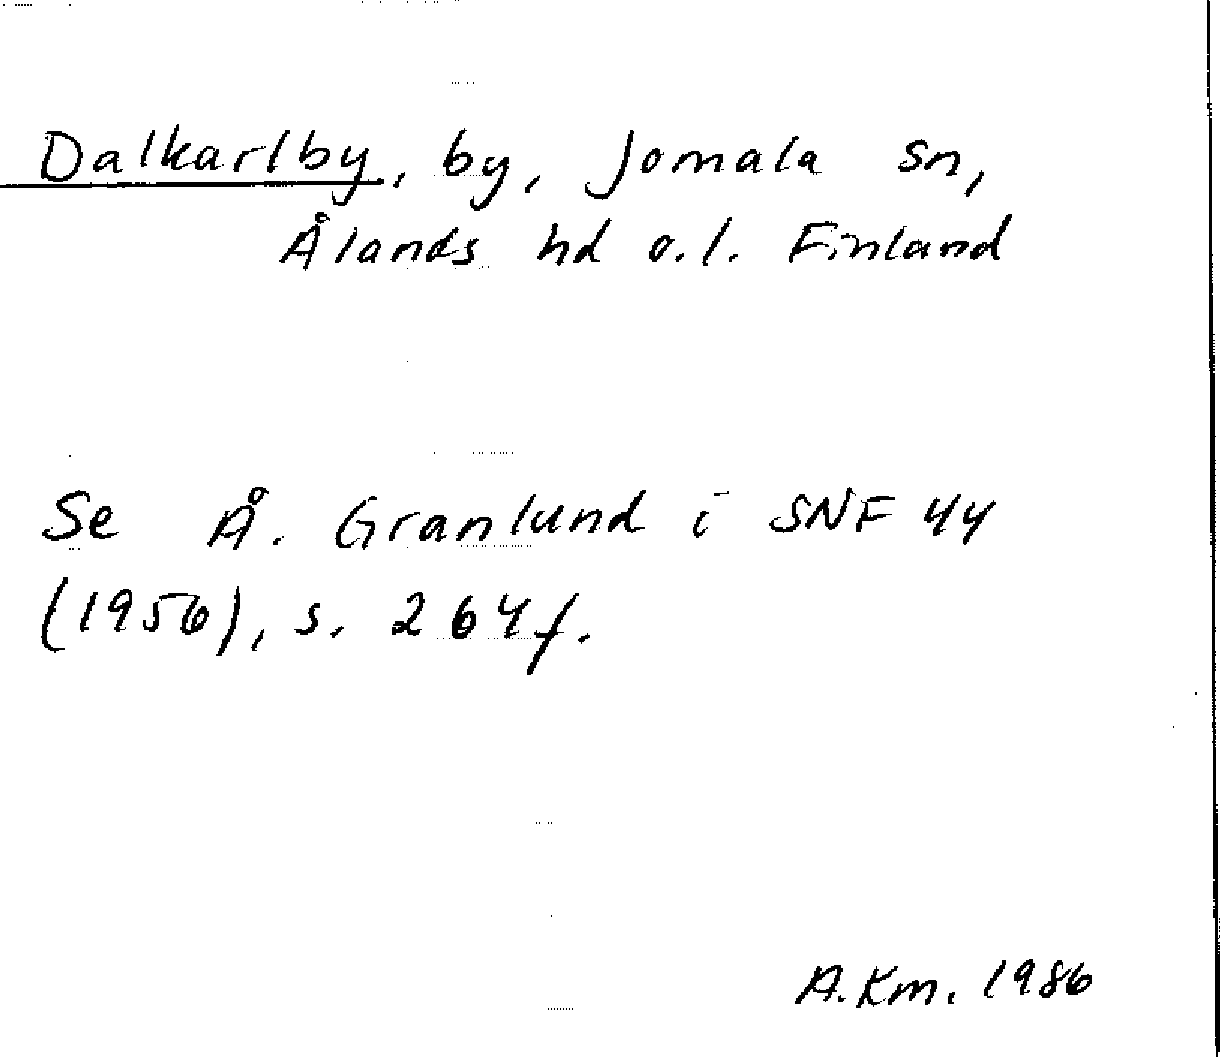 Dalkarlby, by, Jomala sn,
Ålands hd o.l. Finland
Se Å. Granlund i SNF 44
(1956), s. 264f.
A.Km. 1986